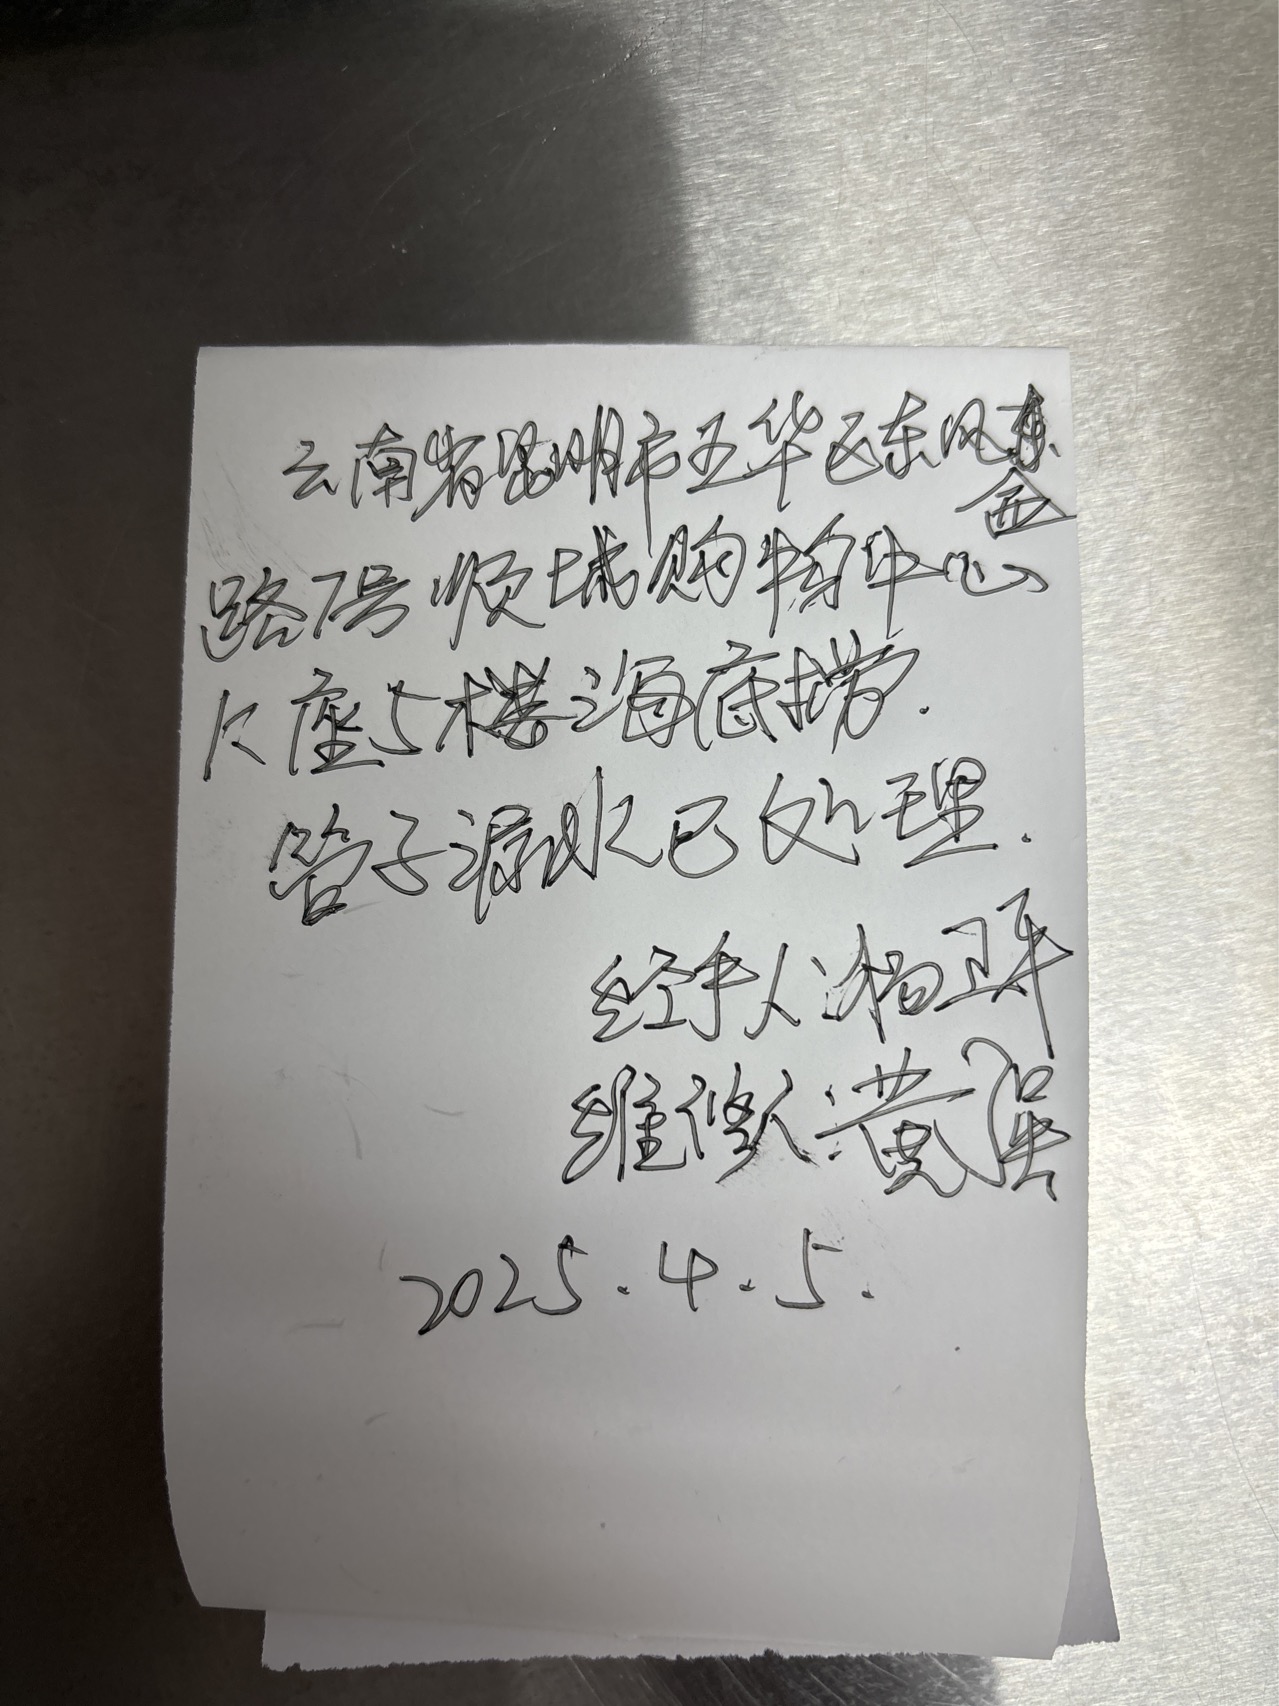 云南省昆明市五华区东风
西
路1号顺城购物中心
座5楼海底捞.
管子漏水已处理.
经手人:杨卫
维修人:黄
2025.4.5.